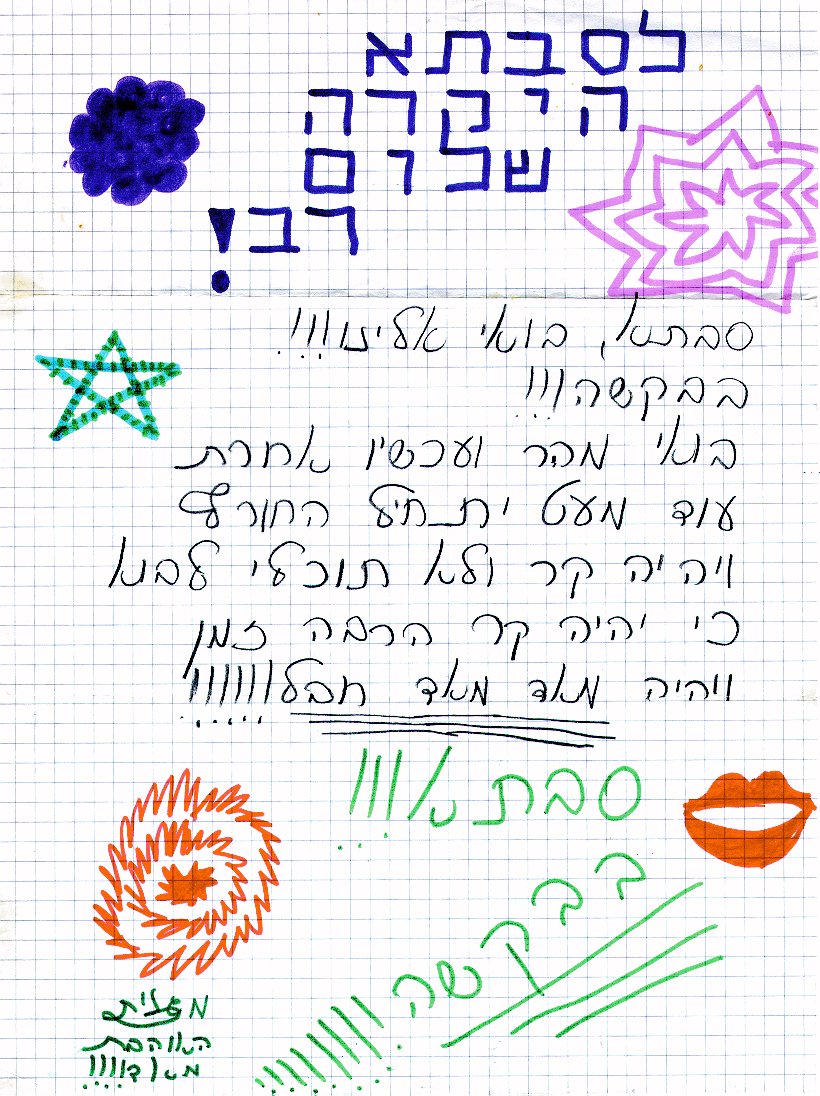 לסבתא
היקרה
שלום
רב!
סבתא, בואי אלינו!!!
בבקשה!!!
בואי מהר ועכשיו אחרת
עוד מעט יתחיל החורף
ויהיה קר ולא תוכלי לבוא
כי יהיה קר הרבה זמן
ויהיה מאד מאד חבל!!!!!!
סבתא!!!
בבקשה!!!!!!!!
האוהבת
מאוד!!!!